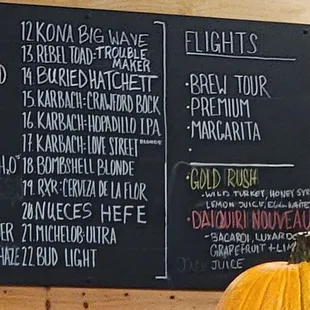 12 KONA BIG WAVE
13 REBEL TOAD: TROUBLE
MAKER
14 BURIED HATCHETT
15 KARBACH: CRAWFORD BOCK
16 KARBACH: HOPADILLO IPA
17 KARBACH: LOVE STREET
BLONDE
H2O 18 BOMBSHELL BLONDE
19 RXR: CERVEZA DE LA FLOR
20 NUECES HEFE
ER 21 MICHELOB: ULTRA
HAZE 22 BUD LIGHT
FLIGHTS
• BREW TOUR
• PREMIUM
• MARGARITA
• GOLD RUSH
- WILD TURKEY, HONEY SYR
LEMON JUICE, EGG WHITE
• DAIQUIRI NOUVEAU
- BACARDI, LUXARDO
GRAPEFRUIT + LIM
JUICE